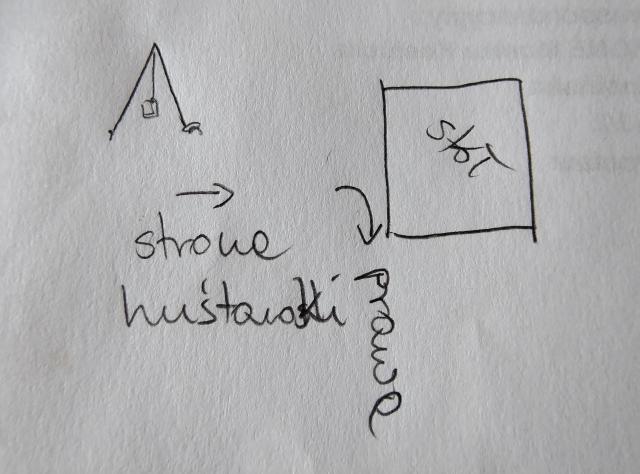 stół
strone
huśtawki
prawe